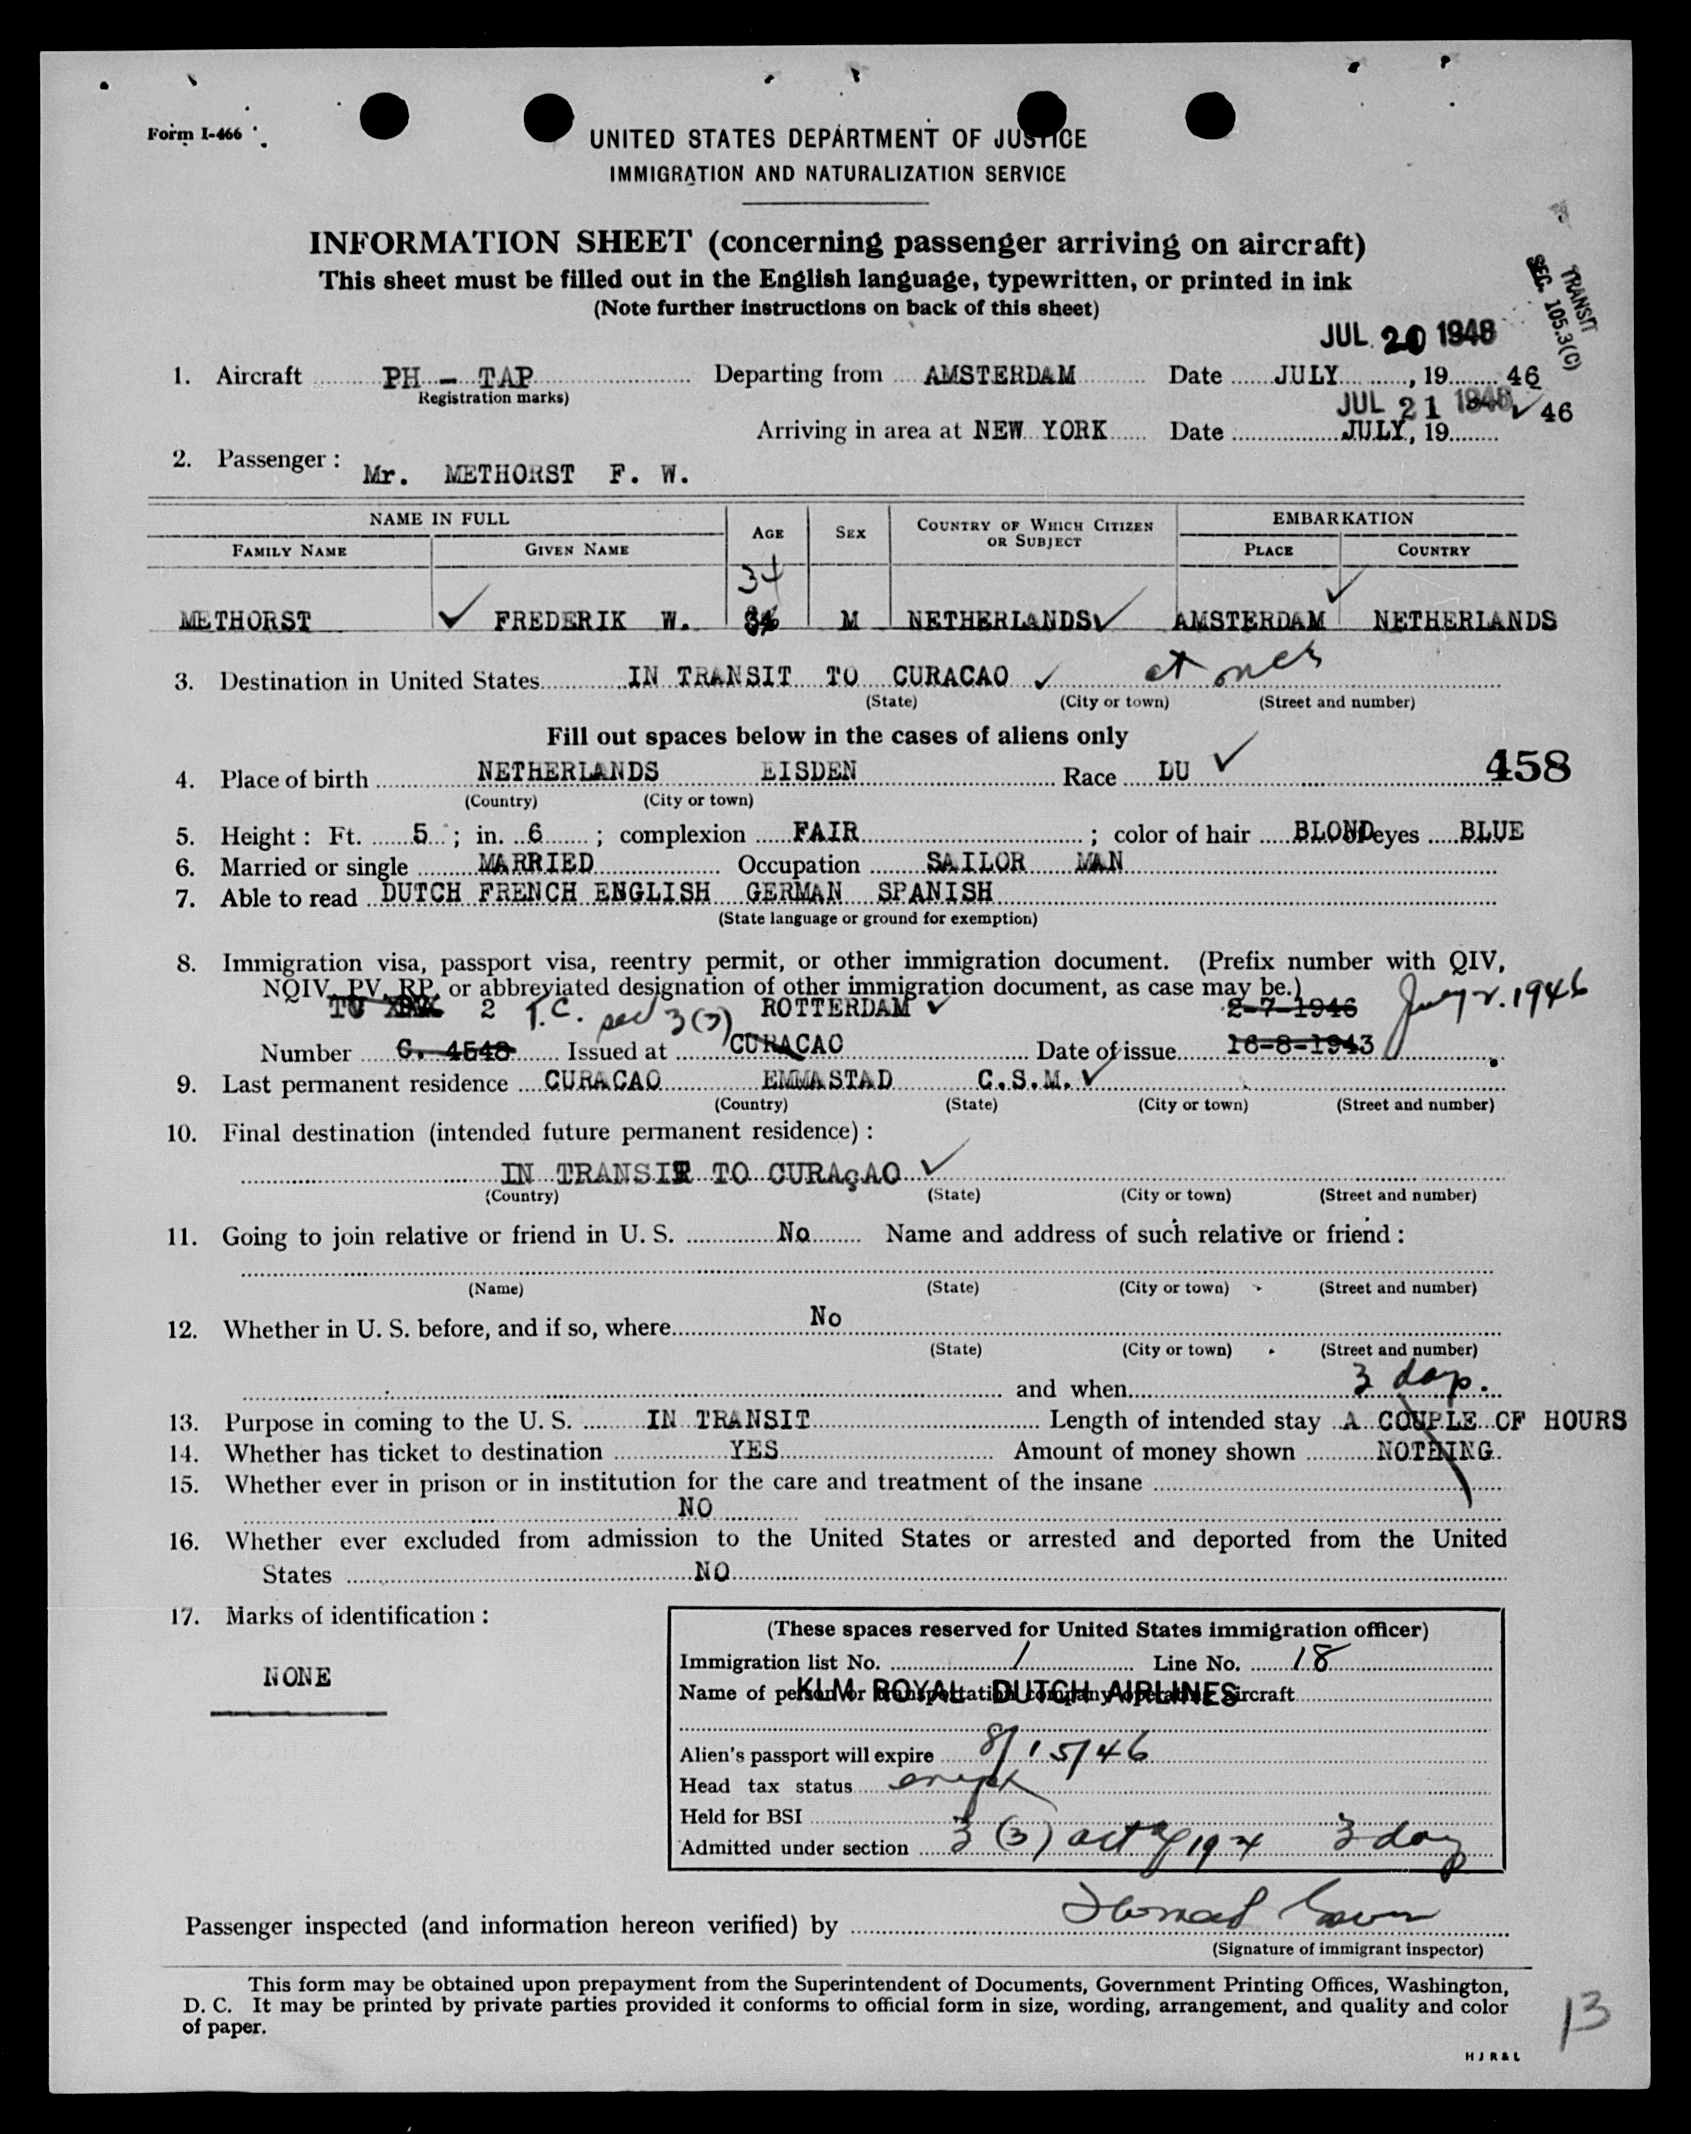 Form I-466
UNITED STATES DEPARTMENT OF JUSTICE
IMMIGRATION AND NATURALIZATION SERVICE
INFORMATION SHEET (concerning passenger arriving on aircraft)
This sheet must be filled out in the English language, typewritten, or printed in ink
(Note further instructions on back of this sheet)
TRANSIT
SEC. 105.3(C)
JUL 20 1948
1. Aircraft PH - TAP Departing from AMSTERDAM Date JULY, 19 46
Registration marks)
JUL 21 1948 46
Arriving in area at NEW YORK Date JULY, 19
2. Passenger: Mr. METHORST F. W.
NAME IN FULL AGE SEX COUNTRY OF WHICH CITIZEN OR SUBJECT EMBARKATION
FAMILY NAME GIVEN NAME PLACE COUNTRY
34
METHORST FREDERIK W. M NETHERLANDS AMSTERDAM NETHERLANDS
3. Destination in United States IN TRANSIT TO CURACAO
(State) (City or town) (Street and number)
Fill out spaces below in the cases of aliens only
4. Place of birth NETHERLANDS EISDEN Race DU 458
(Country) (City or town)
5. Height: Ft. 5; in. 6; complexion FAIR; color of hair BLOND eyes BLUE
6. Married or single MARRIED Occupation SAILOR MAN
7. Able to read DUTCH FRENCH ENGLISH GERMAN SPANISH
(State language or ground for exemption)
8. Immigration visa, passport visa, reentry permit, or other immigration document. (Prefix number with QIV,
NQIV, PV, RP, or abbreviated designation of other immigration document, as case may be.)
2 T.C. sec 3(3) ROTTERDAM 2-7-1946 July 2. 1946
Number C. 4548 Issued at CURACAO Date of issue 16-8-1943
9. Last permanent residence CURACAO EMMASTAD C.S.M.
(Country) (State) (City or town) (Street and number)
10. Final destination (intended future permanent residence):
IN TRANSIT TO CURAçAO
(Country) (State) (City or town) (Street and number)
11. Going to join relative or friend in U. S. No Name and address of such relative or friend:
(Name) (State) (City or town) (Street and number)
12. Whether in U. S. before, and if so, where No
(State) (City or town) (Street and number)
and when 3 days.
13. Purpose in coming to the U. S. IN TRANSIT Length of intended stay A COUPLE OF HOURS
14. Whether has ticket to destination YES Amount of money shown NOTHING.
15. Whether ever in prison or in institution for the care and treatment of the insane
NO
16. Whether ever excluded from admission to the United States or arrested and deported from the United
States NO
17. Marks of identification:
NONE
(These spaces reserved for United States immigration officer)
Immigration list No. 1 Line No. 18
Name of person or transportation company operating aircraft
KLM ROYAL DUTCH AIRLINES
Alien's passport will expire 8/15/46
Head tax status
Held for BSI
Admitted under section 3 (3) act of 1924 3 day
Passenger inspected (and information hereon verified) by
(Signature of immigrant inspector)
This form may be obtained upon prepayment from the Superintendent of Documents, Government Printing Offices, Washington,
D. C. It may be printed by private parties provided it conforms to official form in size, wording, arrangement, and quality and color
of paper.
13
H J R & L